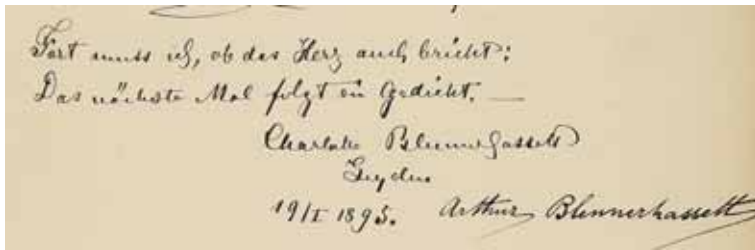 Fort muss ich, ob das Herz auch bricht:
Das nächste Mal folgt ein Gedicht. —
Charlotte Blennerhassett
Leyden
19/I 1895. Arthur Blennerhassett